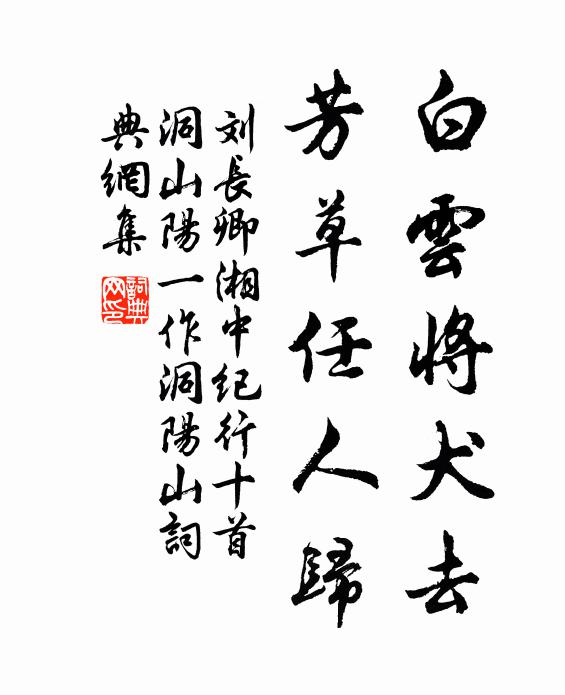 白雲將犬去
芳草任人歸
刘長卿湘中纪行十首
洞山陽一作洞陽山詞
典網集
詞典
网印